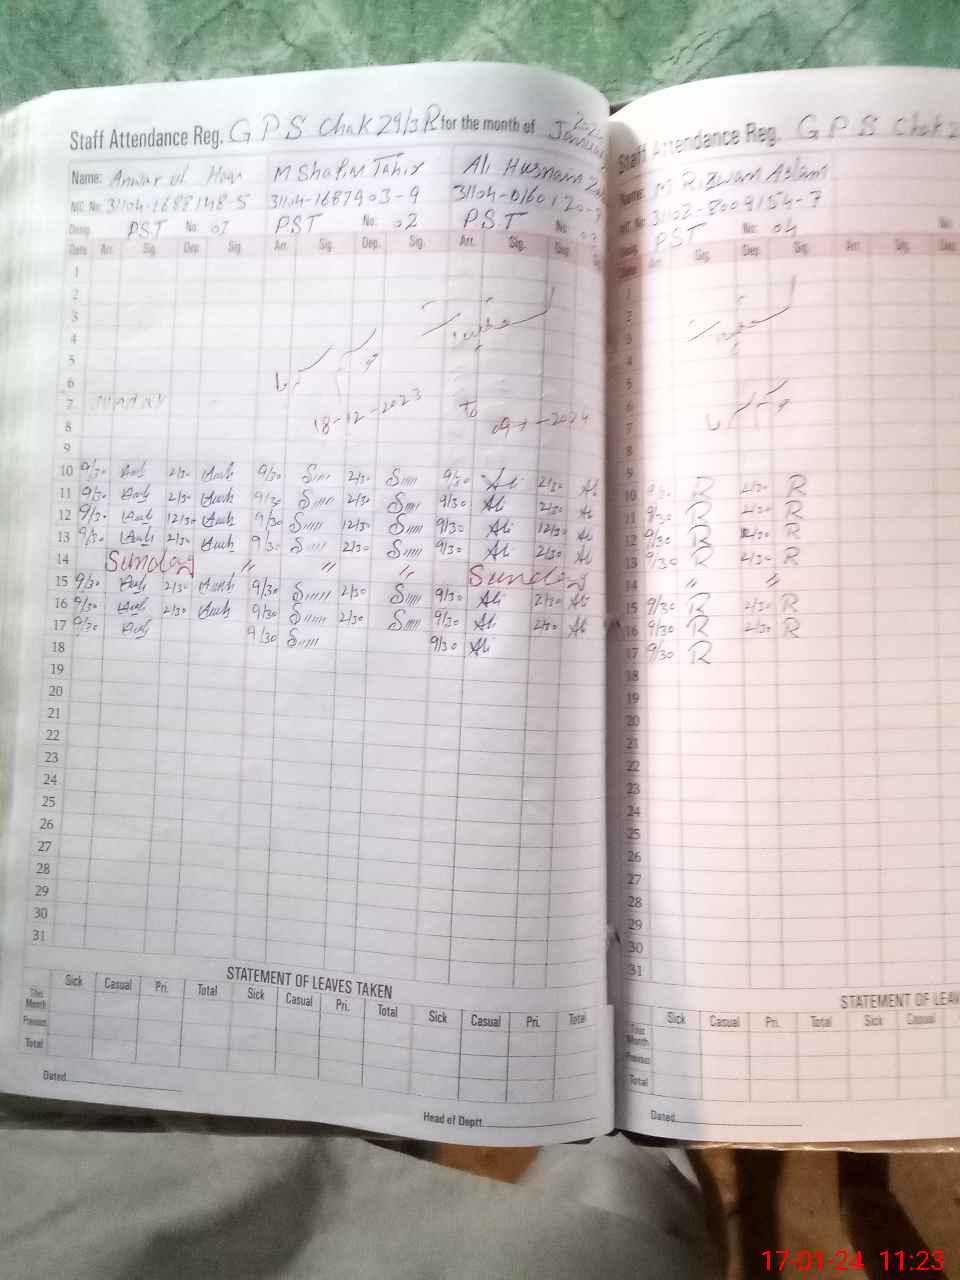 Staff Attendance Reg. GPS Chak 29/3R for the month of January
Name: Anwar ul Haq M Shafim Tahir Ali Husnain
NIC No: 31104-1688148-5 31104-1687903-9 31104-0160120-7
Desig. PST No: 01 PST No: 02 PST No: 03
Date Arr. Sig. Dep. Sig. Arr. Sig. Dep. Sig. Arr. Sig. Dep. Sig.
1
2
3
4
5
6
7 Sunday
8 18-12-2023 To 09-1-2024
9
10 9/30 2/30 9/30 2/30 9/30 Ali 2/30 Ali
11 9/30 2/30 9/30 2/30 9/30 Ali 2/30 Ali
12 9/30 12/30 9/30 12/30 9/30 Ali 12/30 Ali
13 9/30 2/30 9/30 2/30 9/30 Ali 2/30 Ali
14 Sunday " " " Sunday
15 9/30 2/30 9/30 2/30 9/30 Ali 2/30 Ali
16 9/30 2/30 9/30 2/30 9/30 Ali 2/30 Ali
17 9/30 9/30 9/30 Ali
18
19
20
21
22
23
24
25
26
27
28
29
30
31
STATEMENT OF LEAVES TAKEN
Sick Casual Pri. Total Sick Casual Pri. Total Sick Casual Pri. Total
This Month
Previous
Total
Dated
Head of Deptt.
Staff Attendance Reg. GPS Chak 2
Name: M Rizwan Aslam
NIC No: 31102-8009154-7
Desig. PST No: 04 No:
Date Arr. Sig. Dep. Sig. Arr. Sig. Dep.
1
2
3
4
5
6
7
8
9
10 9/30 R 2/30 R
11 9/30 R 2/30 R
12 9/30 R 12/30 R
13 9/30 R 2/30 R
14 " "
15 9/30 R 2/30 R
16 9/30 R 2/30 R
17 9/30 R
18
19
20
21
22
23
24
25
26
27
28
29
30
31
STATEMENT OF LEAV
Sick Casual Pri. Total Sick Casual
This Month
Previous
Total
Dated
17-01-24 11:23